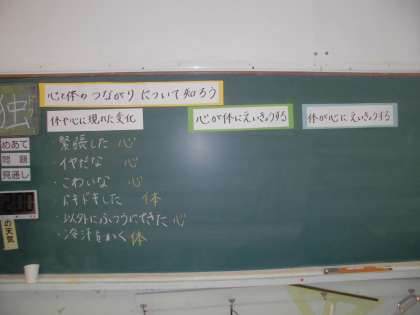 心と体のつながりについて知ろう
独
体や心に現れた変化
心が体にえいきょうする
体が心にえいきょうする
めあて
問題
見通し
・緊張した 心
・イヤだな 心
・こわいな 心
・ドキドキした 体
・以外にふつうにできた 心
・冷汗をかく 体
の天気